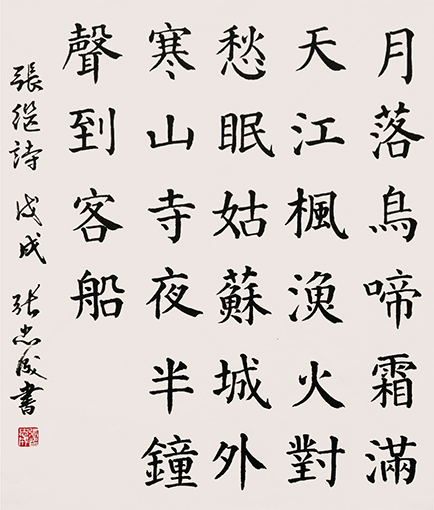 月落烏啼霜滿
天江楓漁火對
愁眠姑蘇城外
寒山寺夜半鐘
聲到客船
張繼詩 戊戌 张忠書